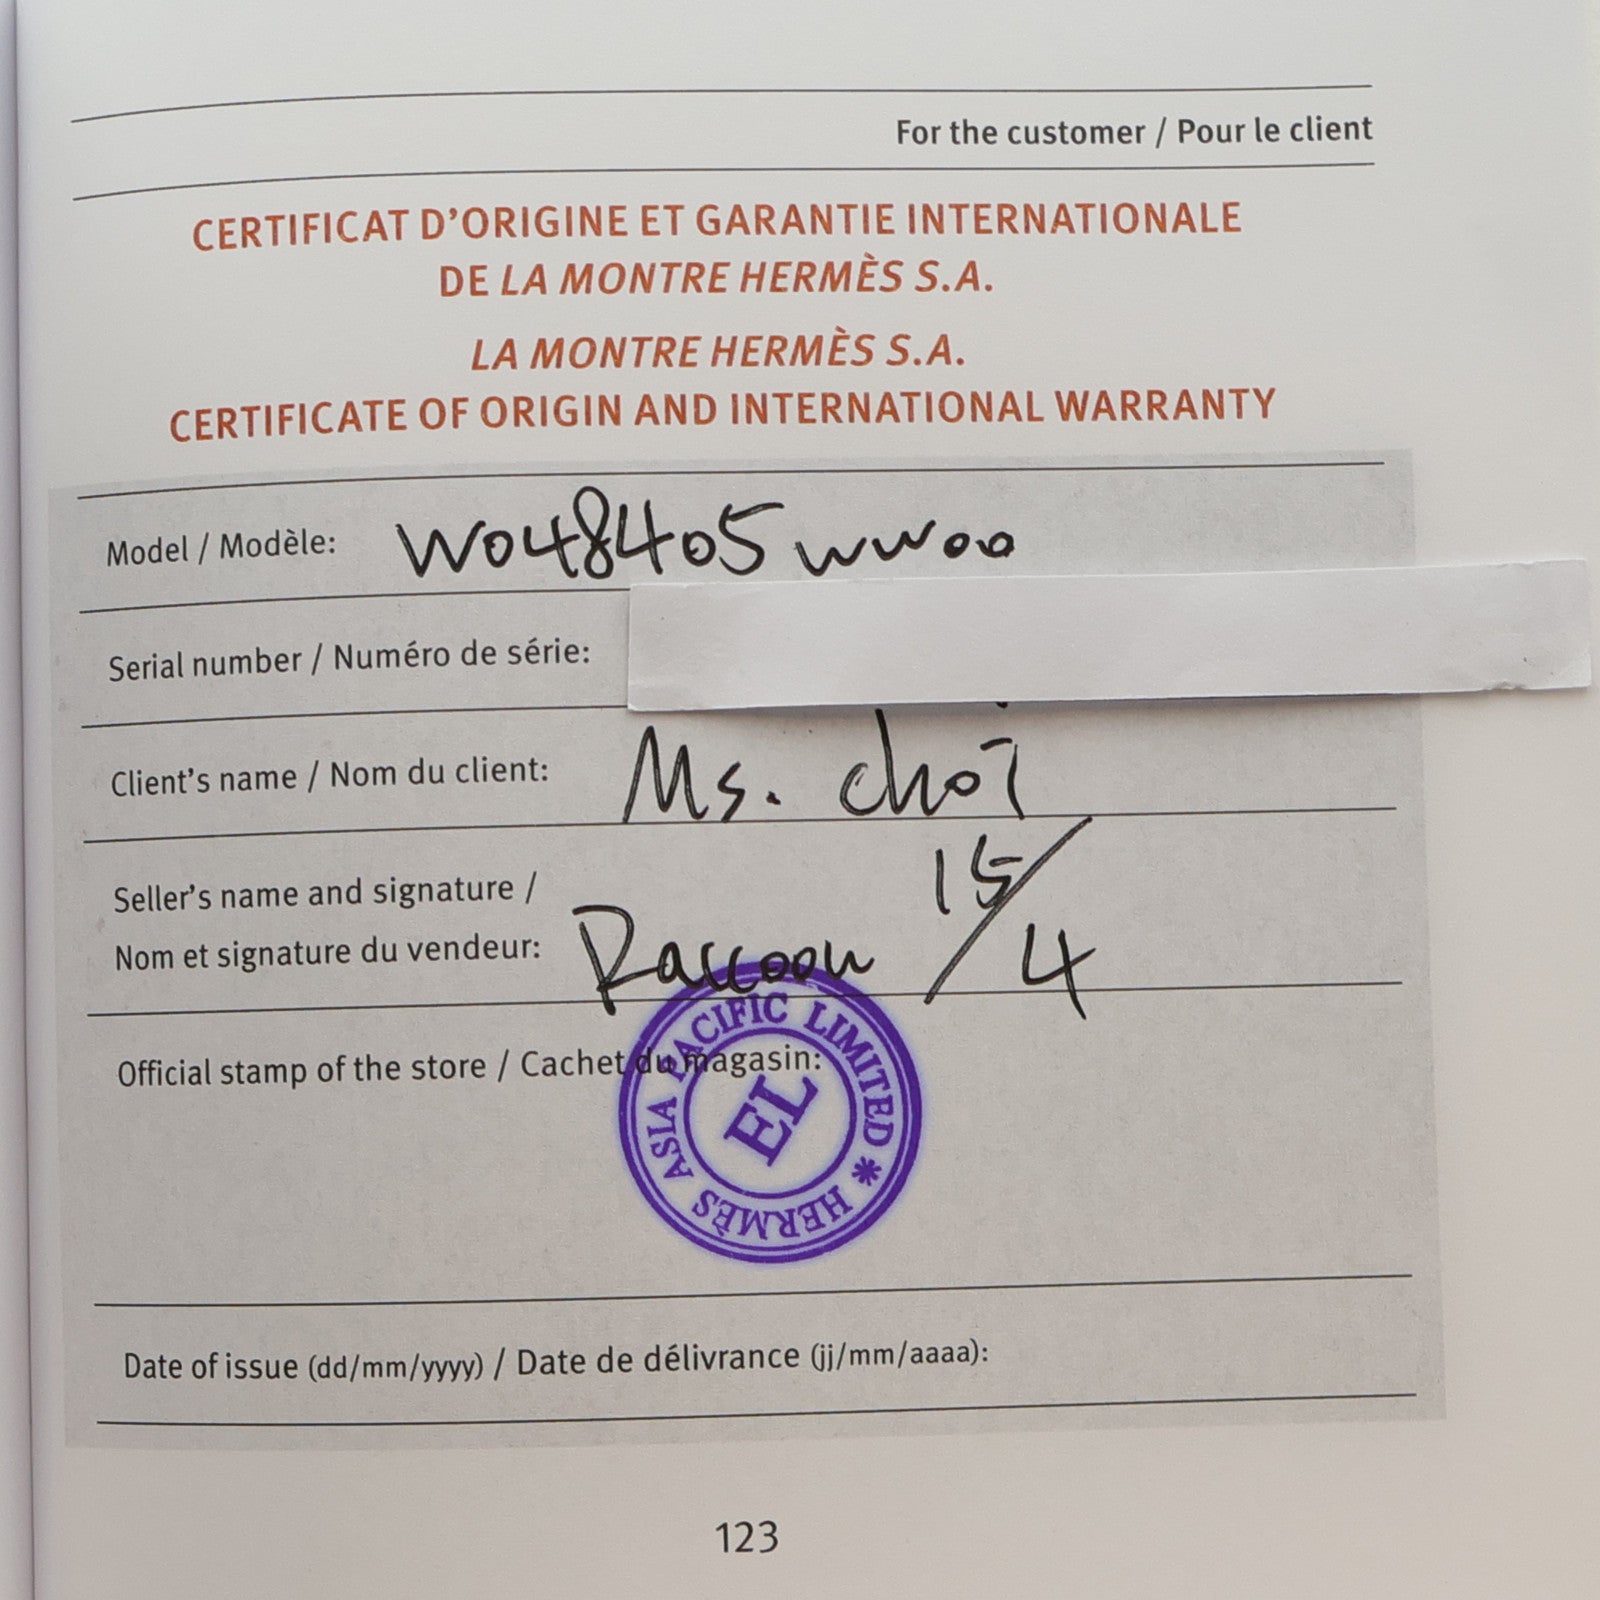 For the customer / Pour le client
CERTIFICAT D'ORIGINE ET GARANTIE INTERNATIONALE
DE LA MONTRE HERMÈS S.A.
LA MONTRE HERMÈS S.A.
CERTIFICATE OF ORIGIN AND INTERNATIONAL WARRANTY
Model / Modèle: W048405WW00
Serial number / Numéro de série:
Client's name / Nom du client: Ms. Choi
Seller's name and signature / 15/4
Nom et signature du vendeur: Raccoon
Official stamp of the store / Cachet du magasin:
HERMÈS ASIA PACIFIC LIMITED *
EL
Date of issue (dd/mm/yyyy) / Date de délivrance (jj/mm/aaaa):
123